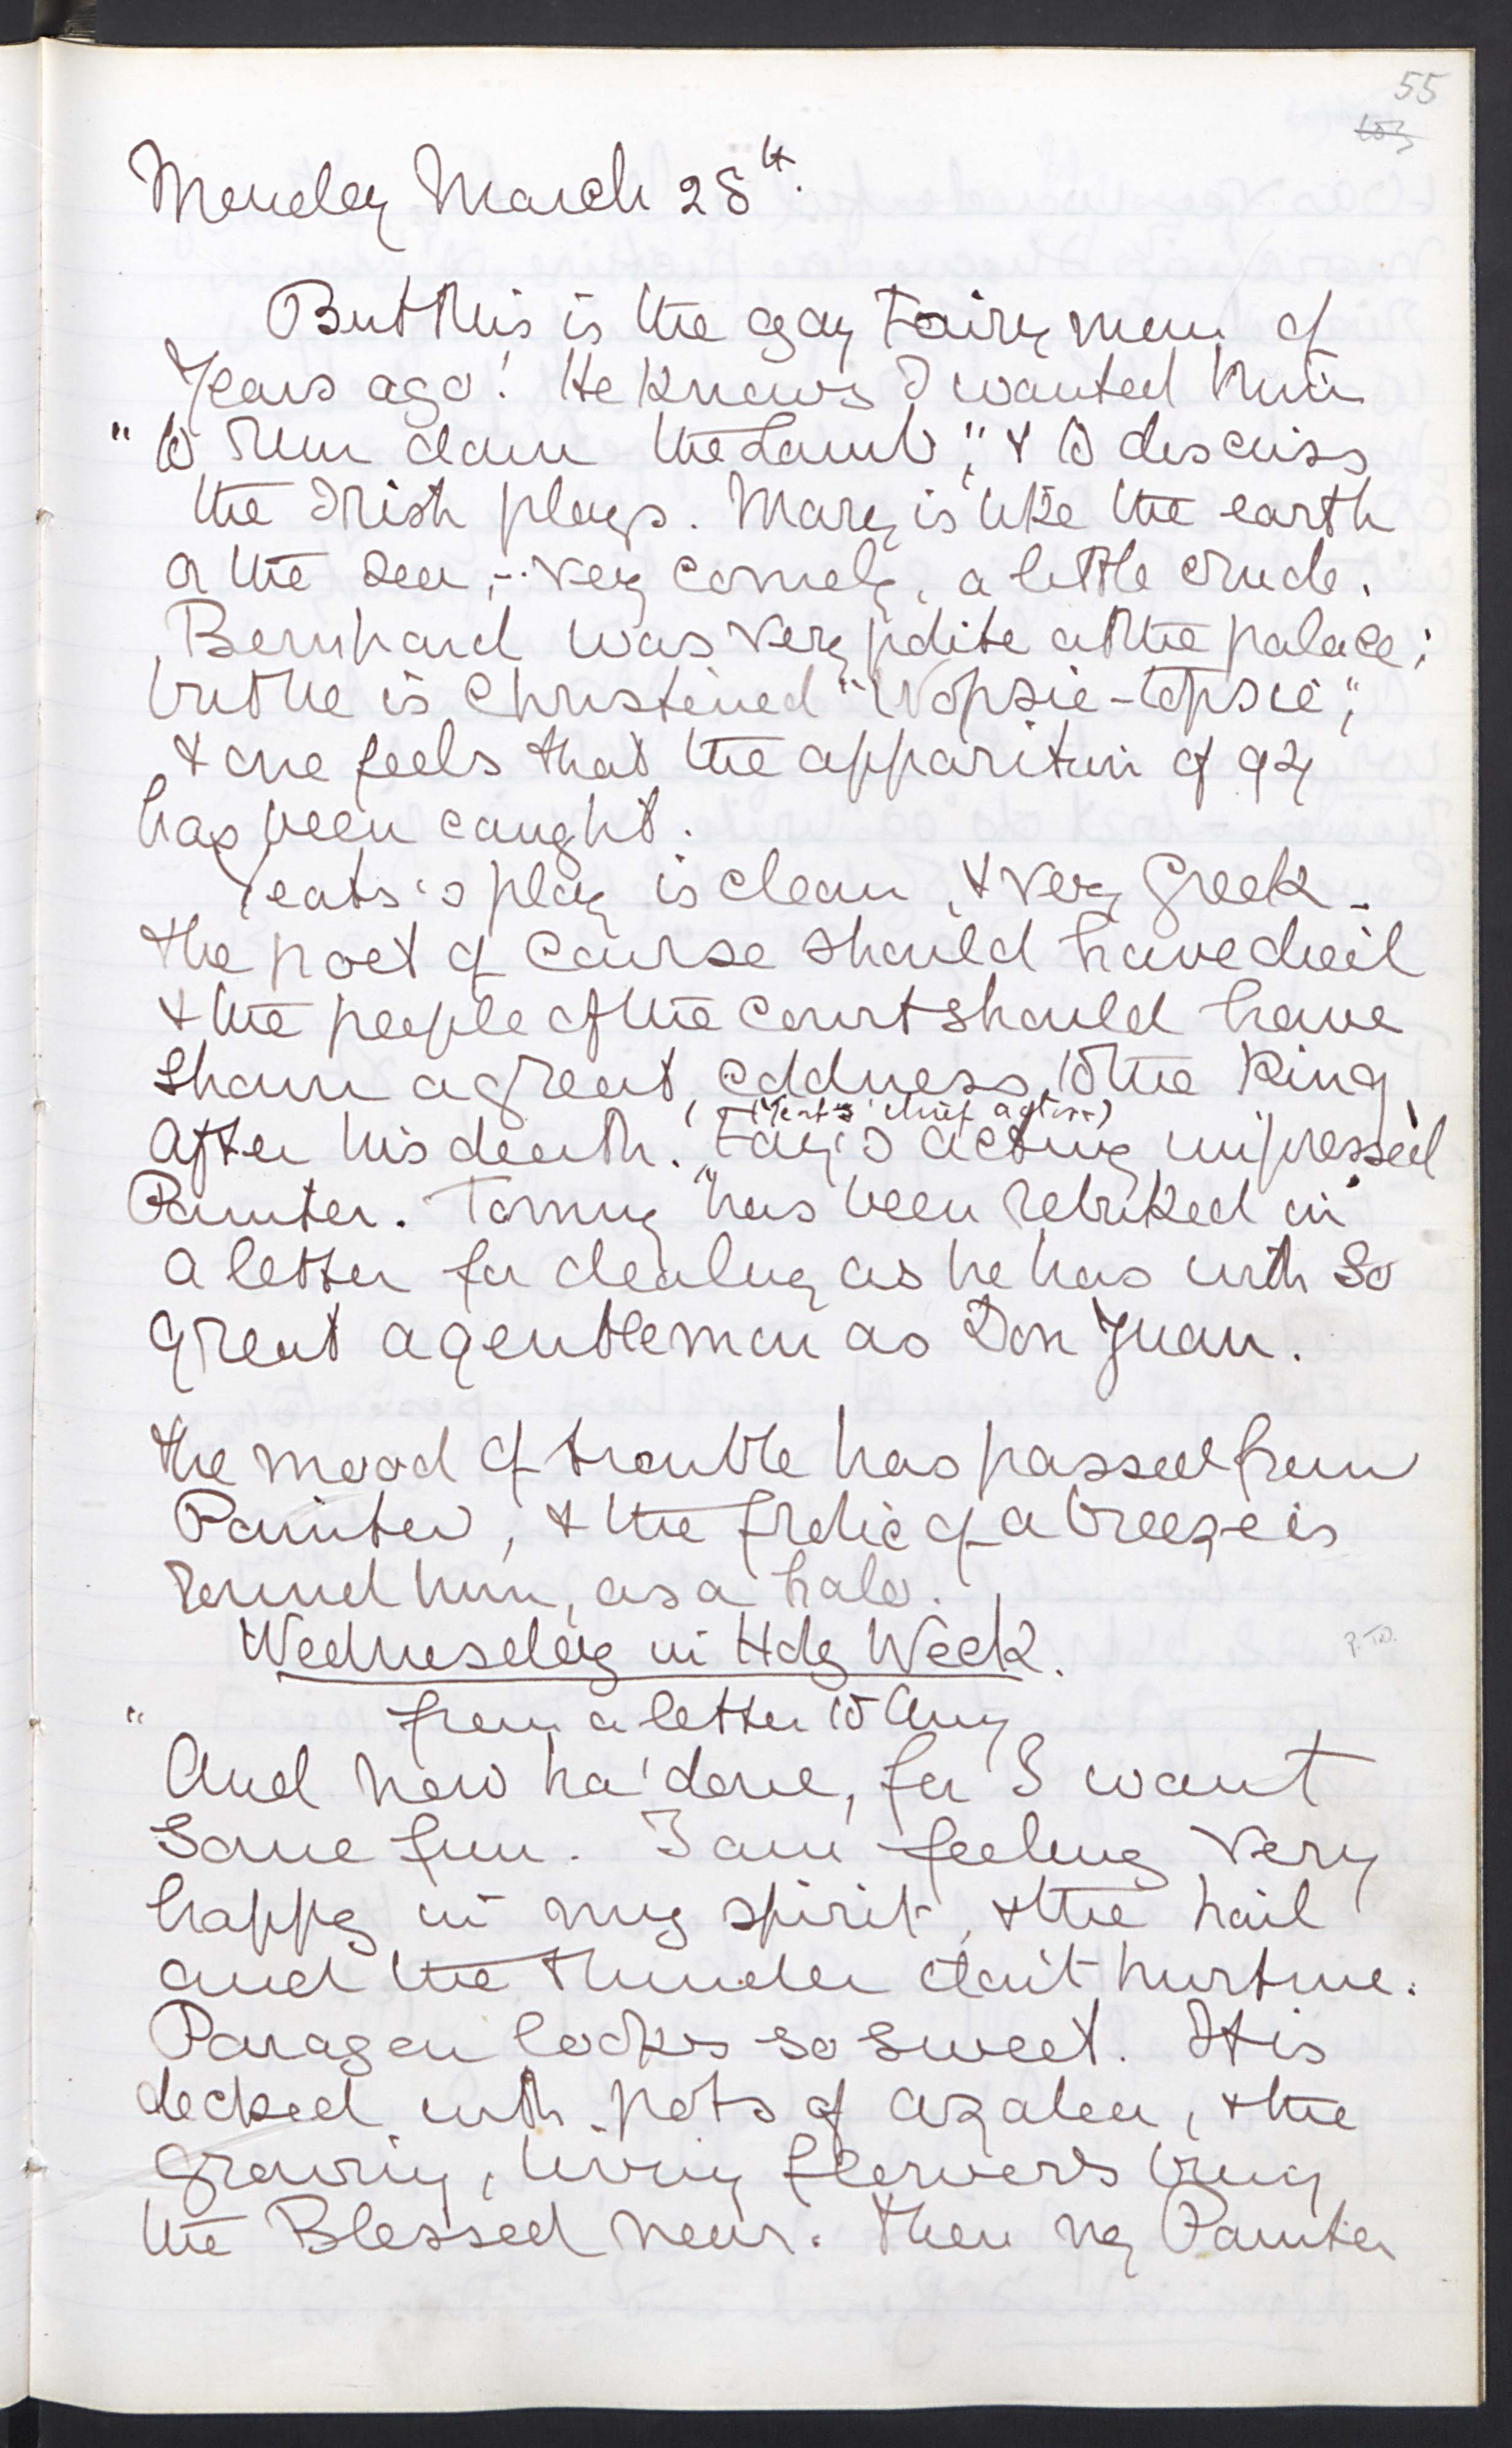 55
Monday March 28th.
But this is the gay Fairy man of
Years ago! He knows I wanted him
"to run down the Lamb", & to discuss
the Irish plays. Mary is like the earth
or the sea, – very comely, a little crude.
Bernhard was very polite at the palace;
but he is christened "Wopsie-topsie",
& one feels that the apparition of 92
has been caught.
Yeats's play is clean, & very Greek –
the poet of course should have died
& the people of the court should have
shown a great oddness to the King
(Yeats' chief actor)
after his death. Fay's acting impressed
Painter. Tommy has been rebuked in
a letter for dealing as he has with so
great a gentleman as Don Juan.
The mood of trouble has passed from
Painter, & the frolic of a breeze is
round him, as a halo.
Wednesday in Holy Week.
P.T.O.
from a letter to Amy
"And now ha' done, for I want
some fun. I am feeling very
happy in my spirit, & the hail
and the thunder don't hurt me.
Paragon looks so sweet. It is
decked with pots of azalea, & the
growing, living flowers bring
the Blessed near. Then my Painter